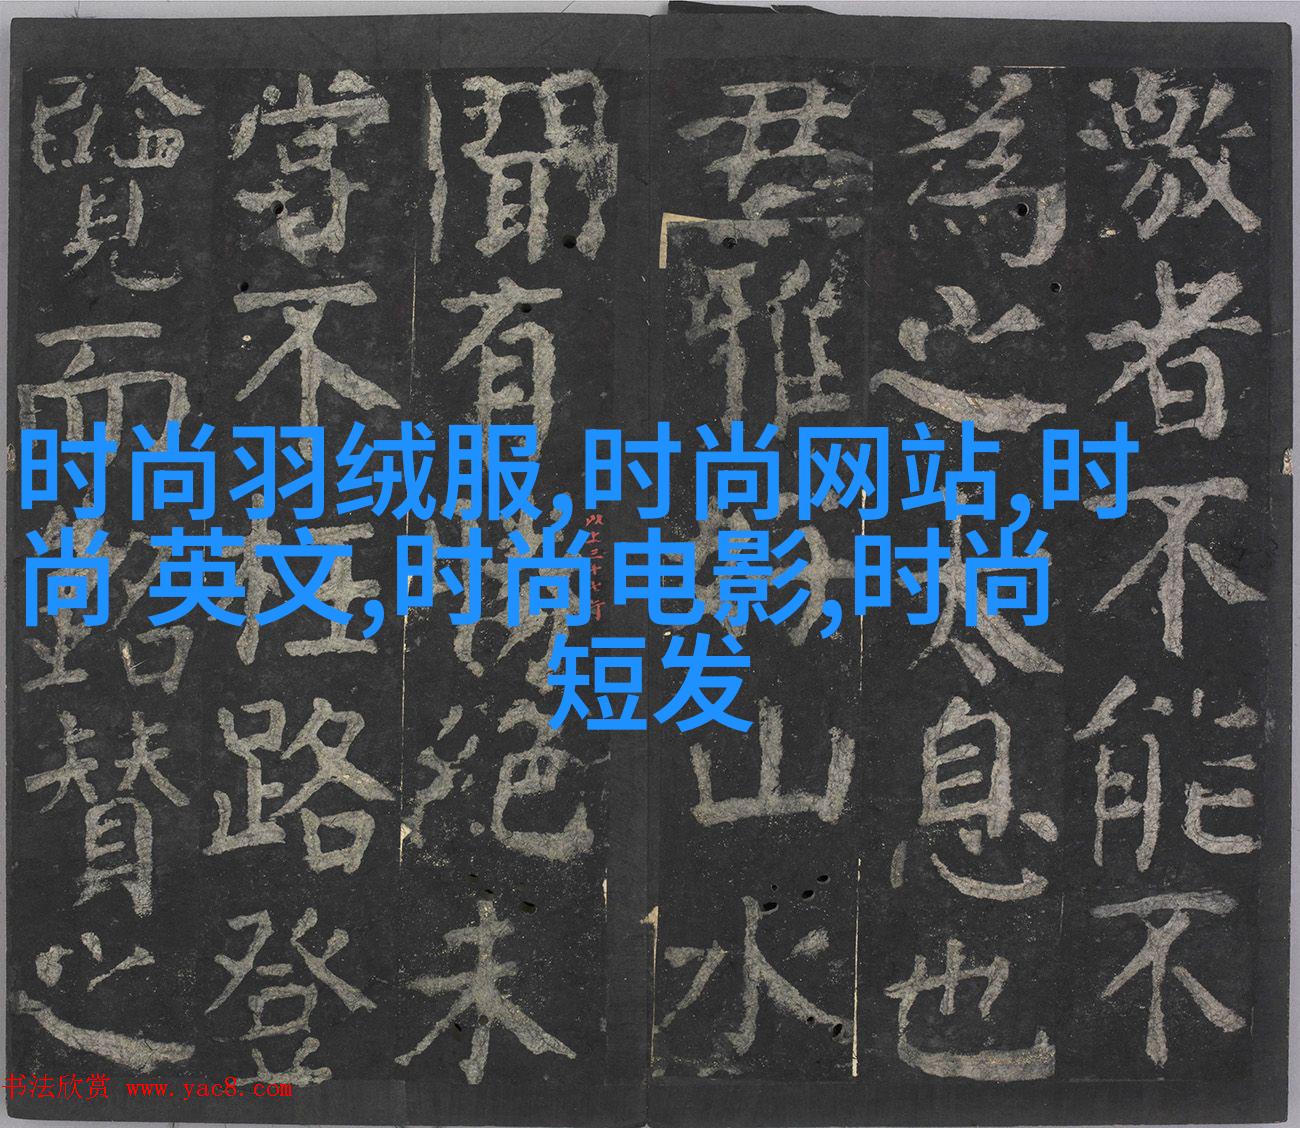 激者不能不
為之太息也
君雅好山水
聞有絕未
嘗不枉路登
覽而銘贊之
时尚羽绒服,时尚网站,时
尚 英文,时尚电影,时尚
短发
书法欣赏 www.yac8.com